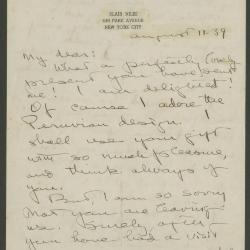 BLAIR NILES
PARK AVENUE
NEW YORK CITY
august 11. 39
My dear:
What a perfectly lovely
present you have sent
me! I am delighted!
Of course I adore the
Peruvian design. I
shall use your gift
with so much pleasure,
and think always of
you.
But, I am so sorry
that you are leaving
us. Surely after
you have had a visit